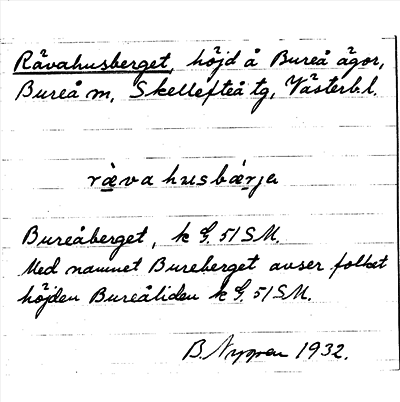 Rävahusberget, höjd å Bureå ägor,
Bureå m, Skellefteå tg, Västerb. l.
rävahusbärja
Bureåberget, k G. 51 SM.
Med namnet Bureberget avser folket
höjden Bureåliden k G. 51 SM.
B. Nyman 1932.